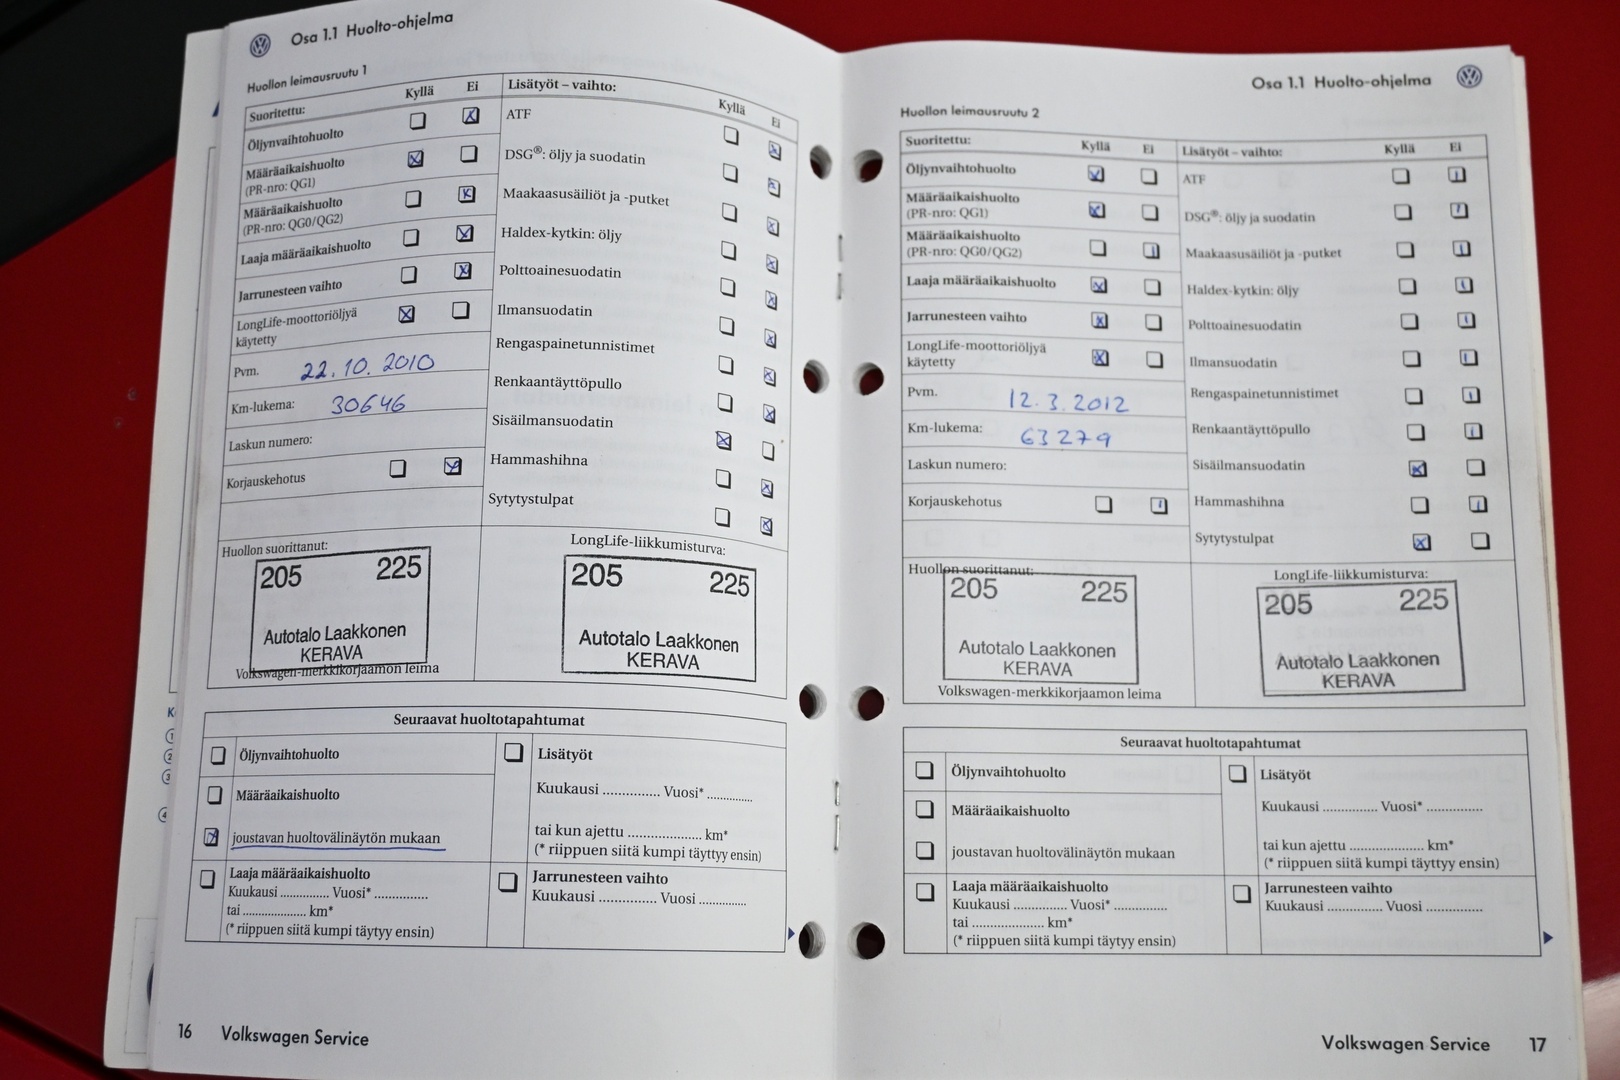 Osa 1.1 Huolto-ohjelma
Huollon leimausruutu 1
Suoritettu: Kyllä Ei
Öljynvaihtohuolto
Määräaikaishuolto
(PR-nro: QG1)
Määräaikaishuolto
(PR-nro: QG0/QG2)
Laaja määräaikaishuolto
Jarrunesteen vaihto
LongLife-moottoriöljyä
käytetty
Pvm. 22.10.2010
Km-lukema: 30646
Laskun numero:
Korjauskehotus
Lisätyöt – vaihto: Kyllä Ei
ATF
DSG®: öljy ja suodatin
Maakaasusäiliöt ja -putket
Haldex-kytkin: öljy
Polttoainesuodatin
Ilmansuodatin
Rengaspainetunnistimet
Renkaantäyttöpullo
Sisäilmansuodatin
Hammashihna
Sytytystulpat
Huollon suorittanut:
205 225
Autotalo Laakkonen
KERAVA
Volkswagen-merkkikorjaamon leima
LongLife-liikkumisturva:
205 225
Autotalo Laakkonen
KERAVA
Seuraavat huoltotapahtumat
Öljynvaihtohuolto
Määräaikaishuolto
joustavan huoltovälinäytön mukaan
Laaja määräaikaishuolto
Kuukausi ............. Vuosi* ..............
tai ..................... km*
(* riippuen siitä kumpi täytyy ensin)
Lisätyöt
Kuukausi ............... Vuosi* ..............
tai kun ajettu ................... km*
(* riippuen siitä kumpi täyttyy ensin)
Jarrunesteen vaihto
Kuukausi ............... Vuosi ..............
16 Volkswagen Service
Osa 1.1 Huolto-ohjelma
Huollon leimausruutu 2
Suoritettu: Kyllä Ei
Öljynvaihtohuolto
Määräaikaishuolto
(PR-nro: QG1)
Määräaikaishuolto
(PR-nro: QG0/QG2)
Laaja määräaikaishuolto
Jarrunesteen vaihto
LongLife-moottoriöljyä
käytetty
Pvm. 12.3.2012
Km-lukema: 63279
Laskun numero:
Korjauskehotus
Lisätyöt – vaihto: Kyllä Ei
ATF
DSG®: öljy ja suodatin
Maakaasusäiliöt ja -putket
Haldex-kytkin: öljy
Polttoainesuodatin
Ilmansuodatin
Rengaspainetunnistimet
Renkaantäyttöpullo
Sisäilmansuodatin
Hammashihna
Sytytystulpat
Huollon suorittanut:
205 225
Autotalo Laakkonen
KERAVA
Volkswagen-merkkikorjaamon leima
LongLife-liikkumisturva:
205 225
Autotalo Laakkonen
KERAVA
Seuraavat huoltotapahtumat
Öljynvaihtohuolto
Määräaikaishuolto
joustavan huoltovälinäytön mukaan
Laaja määräaikaishuolto
Kuukausi .............. Vuosi* ..............
tai .................... km*
(* riippuen siitä kumpi täytyy ensin)
Lisätyöt
Kuukausi .............. Vuosi* ..............
tai kun ajettu .................... km*
(* riippuen siitä kumpi täyttyy ensin)
Jarrunesteen vaihto
Kuukausi .............. Vuosi ..............
Volkswagen Service 17